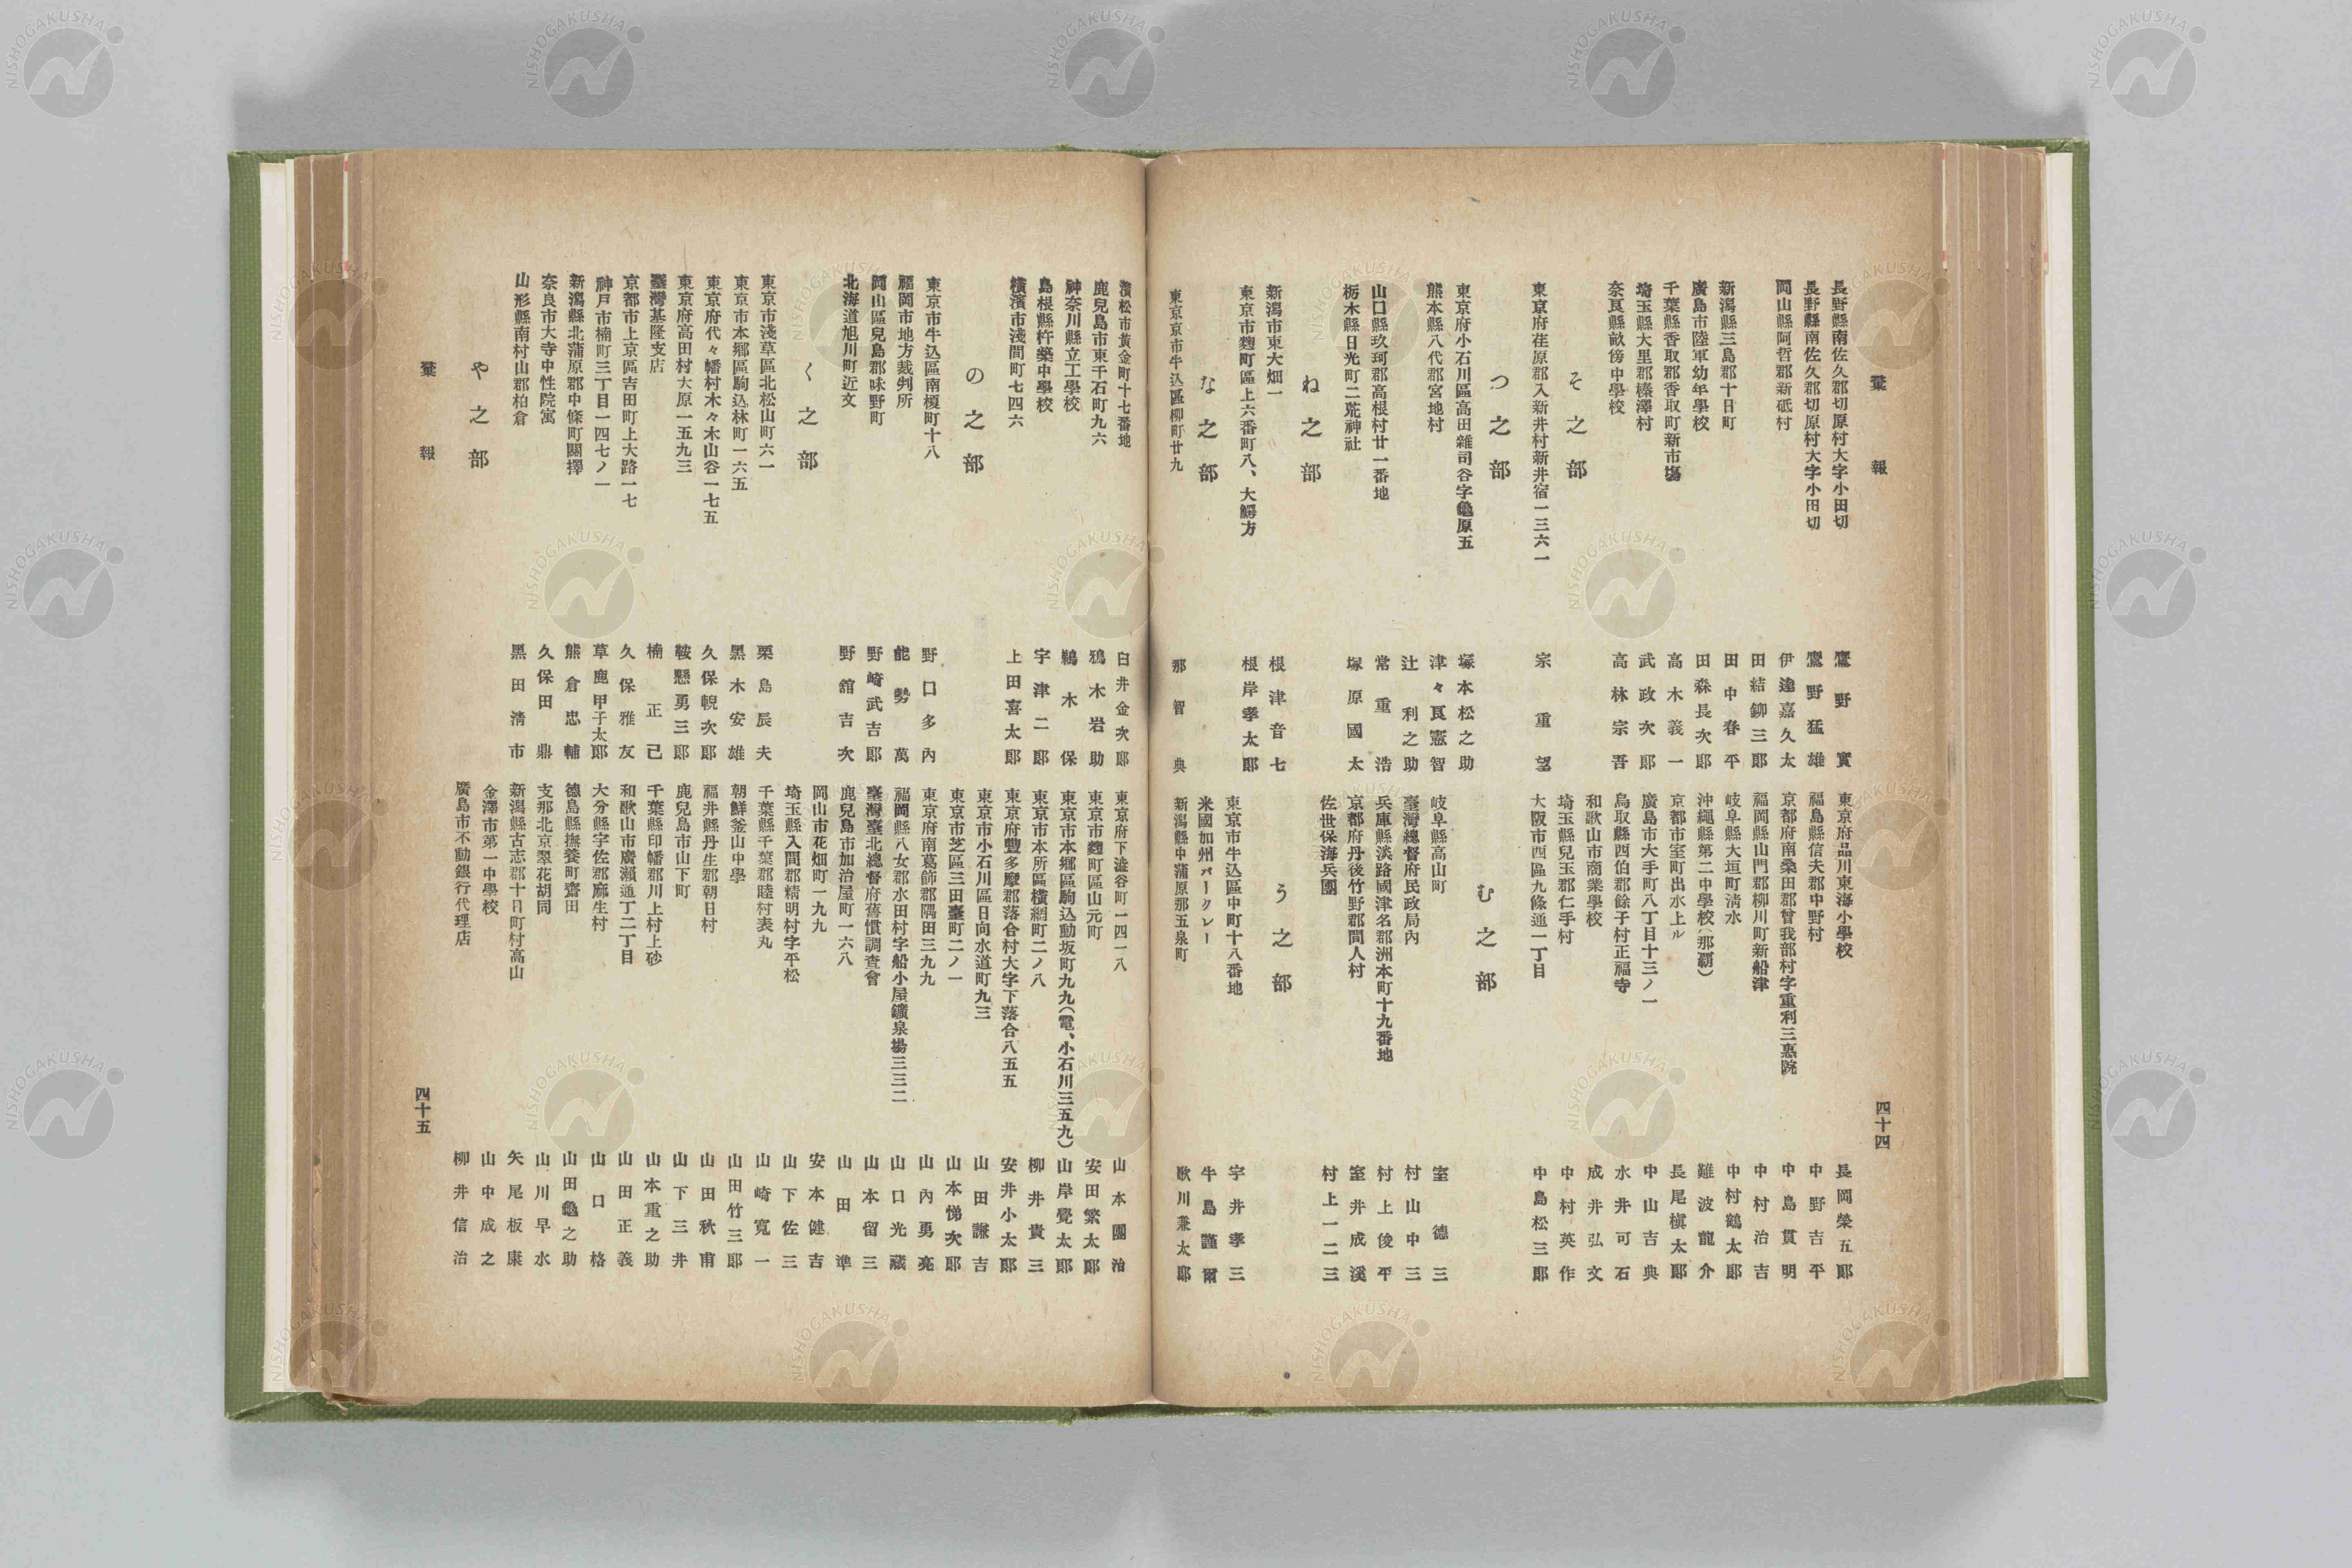 彙報
長野縣南佐久郡切原村大字小田切 鷹野實
長野縣南佐久郡切原村大字小田切 鷹野猛雄
岡山縣阿哲郡新砥村 伊達嘉久太
田結鉚三郎
新潟縣三島郡十日町 田中春平
廣島市陸軍幼年學校 田森長次郎
千葉縣香取郡香取町新市塲 高木義一
埼玉縣大里郡榛澤村 武政次郎
奈良縣畝傍中學校 高林宗吾
そ之部
東京府荏原郡入新井村新井宿一三六一 宗重望
つ之部
東京府小石川區高田雜司谷字龜原五 塚本松之助
熊本縣八代郡宮地村 津々良憲智
辻利之助
山口縣玖珂郡高根村廿一番地 常重浩
栃木縣日光町二荒神社 塚原國太
ね之部
新潟市東大畑一 根津音七
東京市麴町區上六番町八、大鰐方 根岸孝太郎
な之部
東京京市牛込區柳町廿九 那智典
東京府品川東海小學校 長岡榮五郎
福島縣信夫郡中野村 中野吉平
京都府南桑田郡曾我部村字重利三惠院 中島貫明
福岡縣山門郡柳川町新船津 中村治吉
岐阜縣大垣町淸水 中村鶴太郎
沖繩縣第二中學校(那覇) 難波龍介
京都市室町出水上ル 長尾槇太郎
廣島市大手町八丁目十三ノ一 中山吉典
鳥取縣西伯郡餘子村正福寺 水井可石
和歌山市商業學校 成井弘文
埼玉縣兒玉郡仁手村 中村英作
大阪市西區九條通一丁目 中島松三郎
む之部
岐阜縣高山町 室德三
臺灣總督府民政局內 村山中三
兵庫縣淡路國津名郡洲本町十九番地 村上俊平
京都府丹後竹野郡間人村 室井成溪
佐世保海兵團 村上一二三
う之部
東京市牛込區中町十八番地 宇井孝三
米國加州バークレー 牛島謹爾
新潟縣中蒲原那五泉町 歌川兼太郎
四十四
濱松市黃金町十七番地 臼井金次郎
鹿兒島市東千石町九六 鵜木岩助
神奈川縣立工學校 鵜木保
島根縣杵築中學校 宇津二郎
橫濱市淺間町七四六 上田喜太郎
の之部
東京市牛込區南榎町十八 野口多內
福岡市地方裁判所 能勢萬
岡山區兒島郡味野町 野崎武吉郎
北海道旭川町近文 野舘吉次
く之部
東京市淺草區北松山町六一 栗島辰夫
東京市本鄕區駒込林町一六五 黑木安雄
東京府代々幡村木々木山谷一七五 久保輗次郎
東京府高田村大原一五九三 鞍懸勇三郎
臺灣基隆支店 楠正己
京都市上京區吉田町上大路一七 久保雅友
神戸市楠町三丁目一四七ノ一 草鹿甲子太郎
新潟縣北蒲原郡中條町關擇 熊倉忠輔
奈良市大寺中性院寓 久保田鼎
山形縣南村山郡柏倉 黑田淸市
や之部
東京府下澁谷町一四一八 山本團治
東京市麴町區山元町 安田繁太郎
東京市本鄕區駒込動坂町九九(電、小石川三五九) 山岸覺太郎
東京市本所區橫網町二ノ八 柳井貴三
東京府豐多摩郡落合村大字下落合八五五 安井小太郎
東京市小石川區日向水道町九三 山田謙吉
東京市芝區三田臺町二ノ一 山本悌次郎
東京府南葛飾郡隅田三九九 山內勇亮
福岡縣八女郡水田村字船小屋鑛泉場三三二 山口光藏
臺灣臺北總督府舊慣調査會 山本留三
鹿兒島市加治屋町一六八 山田準
岡山市花畑町一九九 安本健吉
埼玉縣入間郡精明村字平松 山下佐三
千葉縣千葉郡睦村表丸 山崎寬一
朝鮮釜山中學 山田竹三郎
福井縣丹生郡朝日村 山田秋甫
鹿兒島市山下町 山下三井
千葉縣印幡郡川上村上砂 山本重之助
和歌山市廣瀨通丁二丁目 山田正義
大分縣宇佐郡麻生村 山口格
德島縣撫養町齋田 山田龜之助
支那北京翠花胡同 山川早水
新潟縣古志郡十日町村高山 矢尾板康
金澤市第一中學校 山中成之
廣島市不動銀行代理店 柳井信治
彙報
四十五